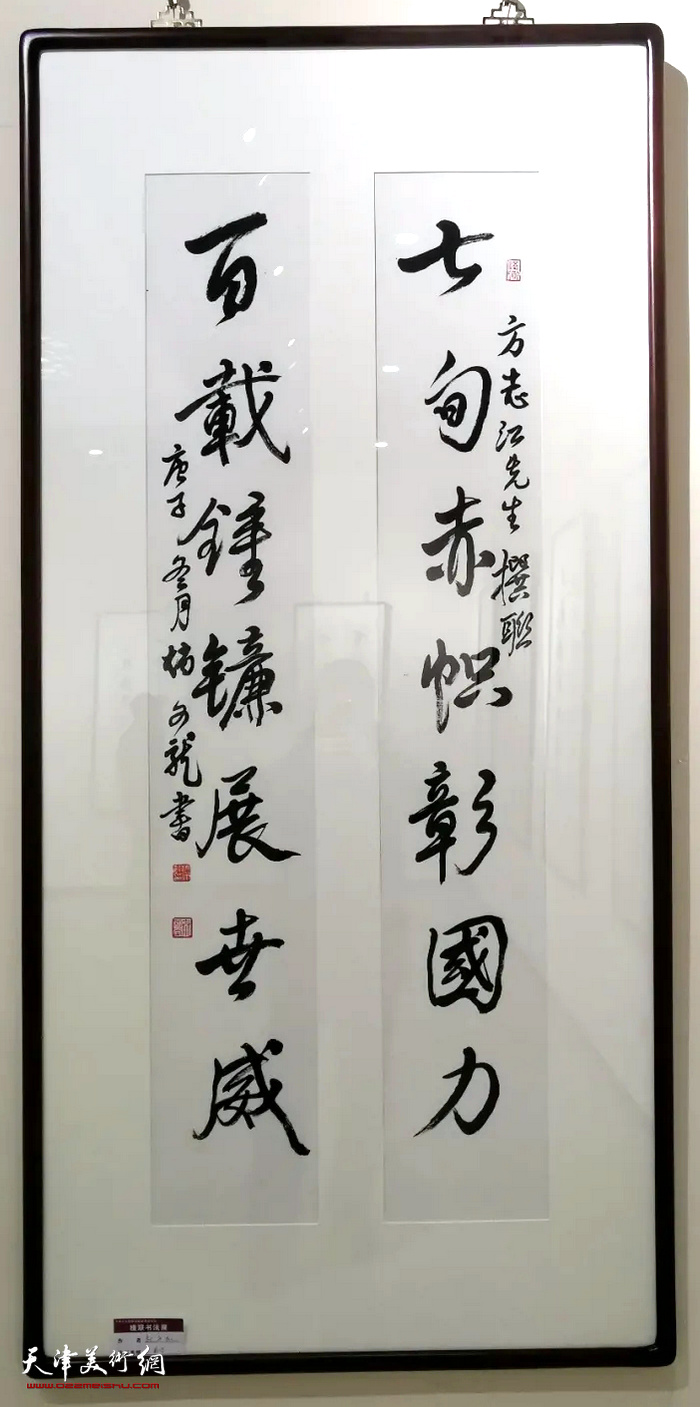 七旬赤帜彰國力
方志江先生撰联
百載錘鐮展世威
庚子冬月
文龍書
楹联书法展
天津美術網
www.022meishu.com